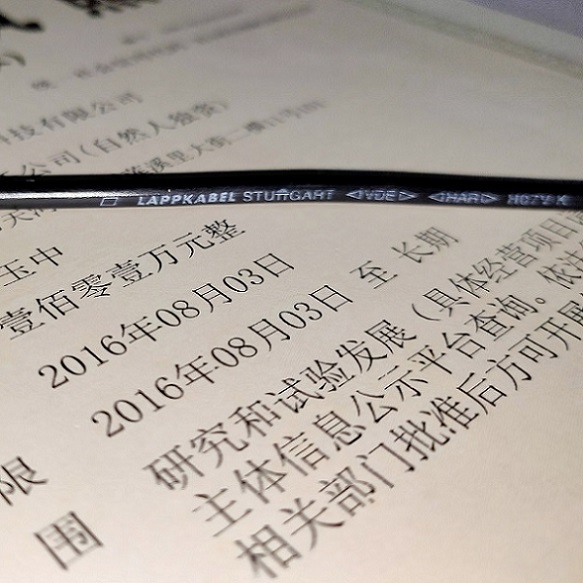 科技有限公司
公司(自然人独资)
LAPPKABEL STUTTGART <VDE> <HAR> H07V-K
玉中
壹佰零壹万元整
2016年08月03日
2016年08月03日 至 长期
限
围
研究和试验发展(具体经营项目
主体信息公示平台查询。依法
相关部门批准后方可开展